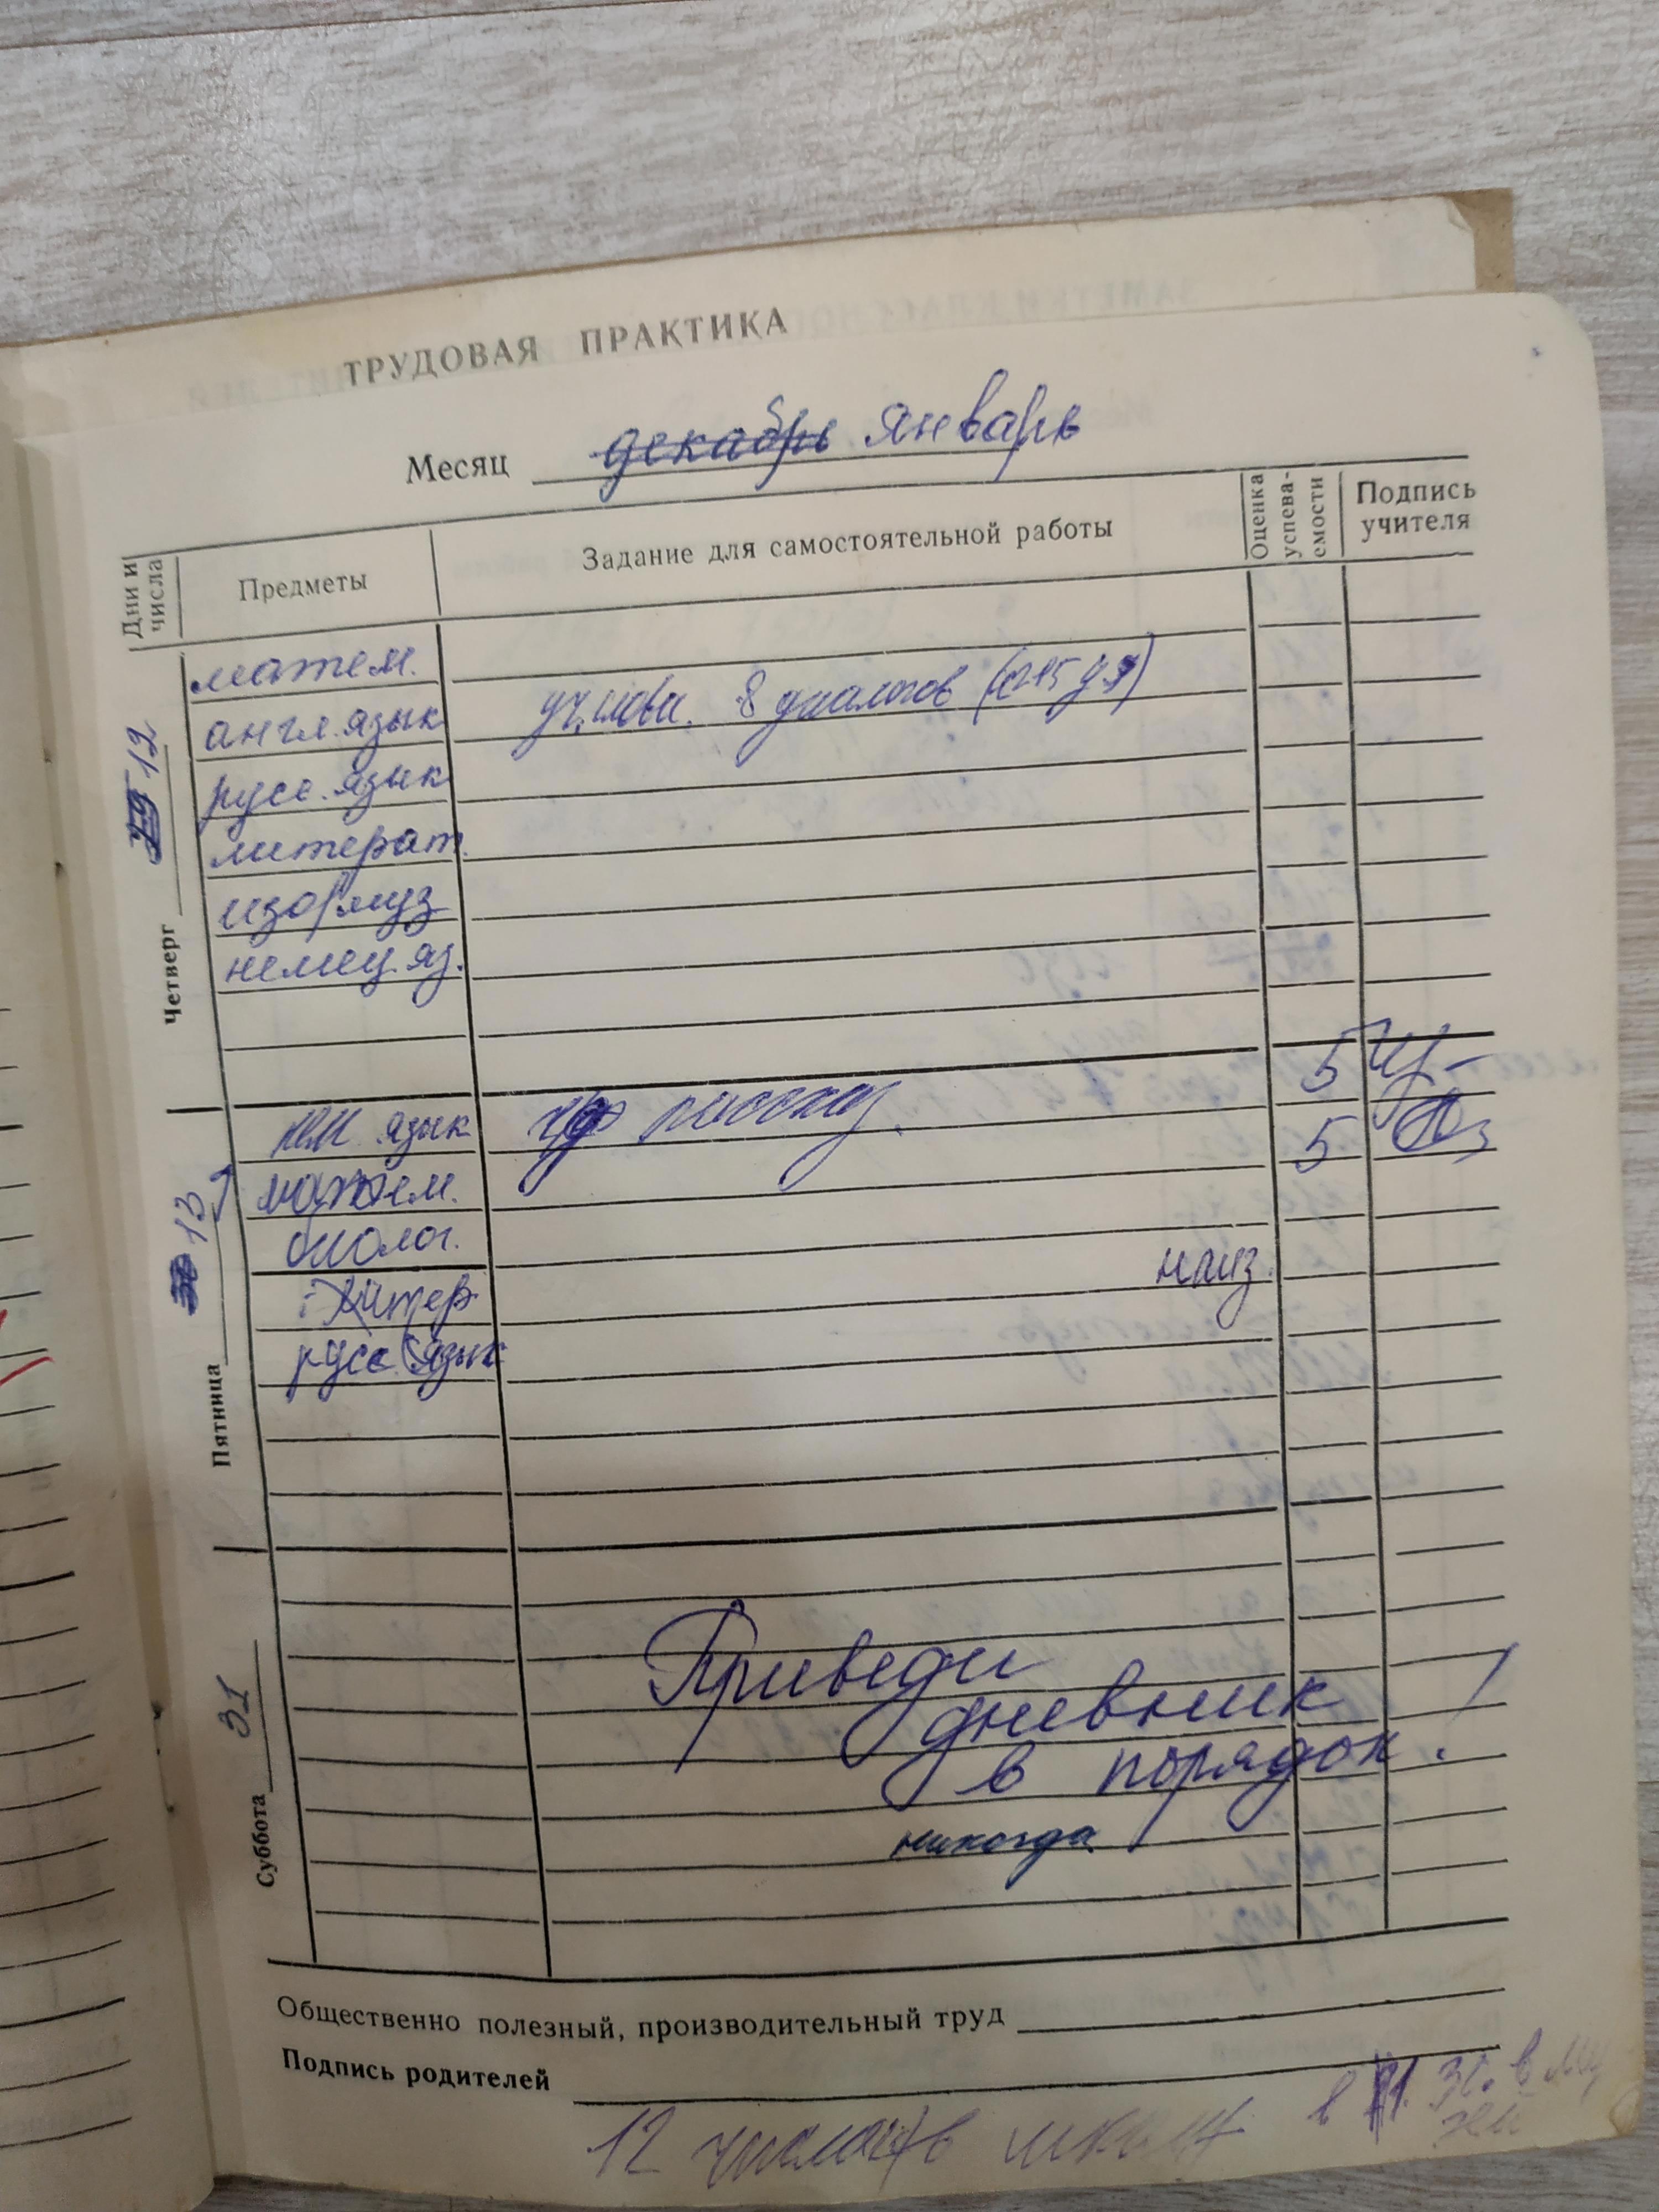 ТРУДОВАЯ ПРАКТИКА
Месяц декабрь январь
Дни и числа Предметы Задание для самостоятельной работы Оценка успева-емости Подпись учителя
Четверг 12
матем.
англ. язык уч. слова. 8 диалогов
русс. язык
литерат.
изо/муз
немец. яз.
Пятница 13
нем. язык рассказ. 5
матем. 5
биолог.
литер наиз.
русс. язык
Суббота 31
Приведи
дневник
в порядок!
никогда
Общественно полезный, производительный труд
Подпись родителей
12 числа в школу